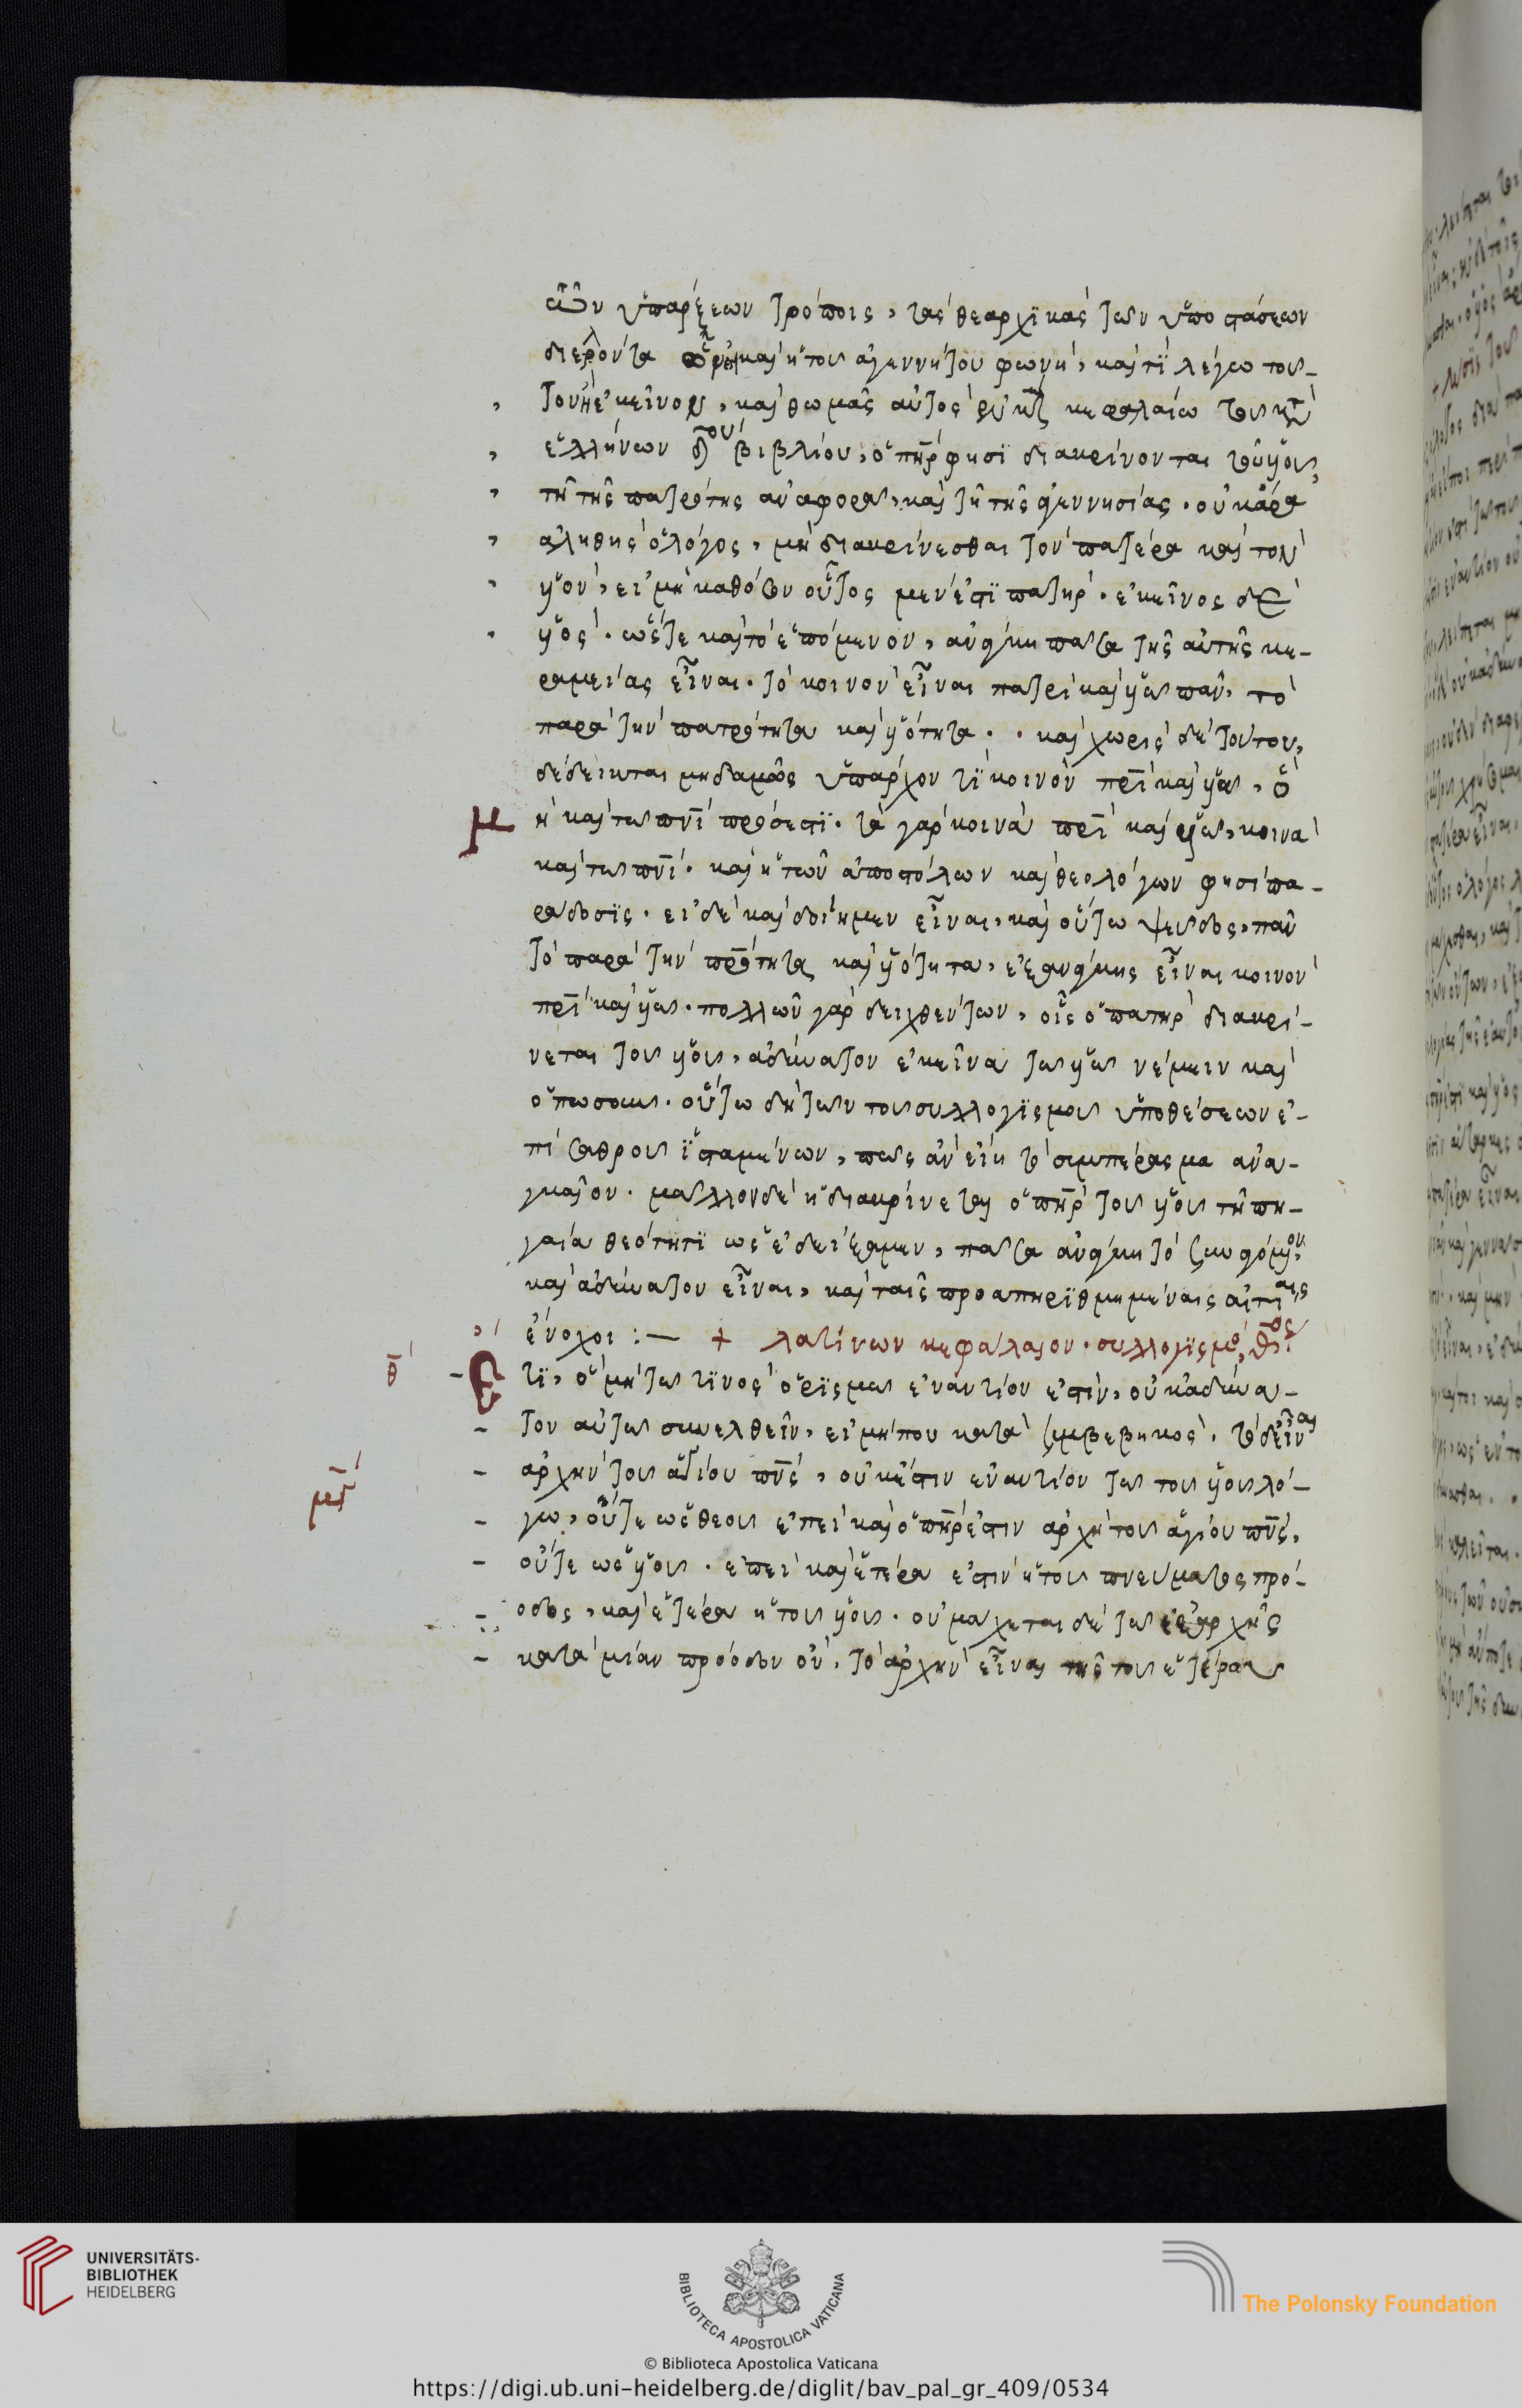 τῶν ὑπάρξεων τρόποις, τὰς θεαρχϊκὰς τῶν ὑποστάσεων
καὶ ἡ τοῦ ἀγεννήτου φωνή, καὶ τϊ λέγω τοῦ-
τον ἢ ἐκεῖνον, καὶ θωμᾶς αὐτὸς κεφαλαίω τοῦ κατὰ
ἑλλήνων βιβλίου, ὁ πῆρ φησϊ διακρίνονται τοῦ ὑοῦ,
τῆ τῆς πατρότης ἀναφορᾶ, καὶ τῆ τῆς ἀγεννησίας. οὐκ ἄρα
ἀληθὴς ὁ λόγος, μὴ διακρίνεσθαι τὸν πατέρα καὶ τὸν
ὑὸν, εἰ μὴ καθόσον οὗτος μὲν ἐστϊ πατὴρ. ἐκεῖνος δὲ
ὑὸς. ὥστε καὶ τὸ ἑπόμενον, ἀνάγκη πᾶσα τῆς αὐτῆς κε-
ραμείας εἶναι. τὸ κοινὸν εἶναι πατρὶ καὶ ὑῶ πᾶν, τὸ
παρὰ τὴν πατρότητα καὶ ὑότητα. . καὶ χωρὶς δὲ τούτου,
δέδεικται μηδαμῶς ὑπάρχον τϊ κοινὸν πρϊ καὶ ὑῶ, ὃ
μ
ἢ καὶ τῶ πνϊ πρόσεστϊ. τὰ γὰρ κοινὰ πρϊ καὶ ὑῶ, κοινὰ
καὶ τῶ πνϊ. καὶ ἡ τῶν ἀποστόλων καὶ θεολόγων φησὶ πα-
ράδοσϊς. εἰ δὲ καὶ δοίημεν εἶναι, καὶ οὕτω ψεῦδος, πᾶν
τὸ παρὰ τὴν πρότητα καὶ ὑότητα, ἐξ ἀνάγκης εἶναι κοινὸν
πρϊ καὶ ὑῶ. πολλῶν γὰρ δειχθέντων, οἷς ὁ πατὴρ διακρί-
νεται τοῦ ὑοῦ, ἀδύνατον ἐκεῖνα τῶ ὑῶ νέμειν καὶ
ὁπωσοῦν. οὕτω δὴ τῶν τοῦ συλλογϊσμοῦ ὑποθέσεων ἐ-
πὶ σαθροῦ ϊσταμένων, πῶς ἂν εἴη τὸ συμπέρασμα ἀνα-
γκαῖον. μᾶλλον δὲ ἢ διακρίνεται ὁ πῆρ τοῦ ὑοῦ τῆ πη-
γαία θεότητϊ ὡς ἐδείξαμεν, πᾶσα ἀνάγκη τὸ ἑπόμενον
καὶ ἀδύνατον εἶναι, καὶ ταῖς προαπηρϊθμημέναις αἰτίαις
ἔνοχοι :— + λατίνων κεφάλαιον. συλλογϊσμὸς θος
θ
Ετϊ, ὃ μὴ τῶ τϊνὸς ὁρϊσμῶ ἐναντίον ἐστὶν, οὐκ ἀδύνα-
τον αὐτῶ συνελθεῖν, εἰ μή που κατὰ συμβεβηκὸς. τὸ δὲ εἶναι
μγ
ἀρχὴν τοῦ ἁγίου πνς, οὐκ ἔστιν ἐναντίον τῶ τοῦ ὑοῦ λό-
γω, οὔτε ὡς θεοῦ ἐπεὶ καὶ ὁ πῆρ ἐστιν ἀρχὴ τοῦ ἁγίου πνς,
οὔτε ὡς ὑοῦ. ἐπεὶ καὶ ἑτέρα ἐστὶν ἡ τοῦ πνεύματος πρό-
οδος, καὶ ἑτέρα ἡ τοῦ ὑοῦ. οὐ μάχεται δὲ τῶ ἐξ ἀρχῆς
κατὰ μίαν πρόοδον ὂν, τὸ ἀρχὴν εἶναι τῆς τοῦ ἑτέρου
UNIVERSITÄTS-
BIBLIOTHEK
HEIDELBERG
BIBLIOTECA APOSTOLICA VATICANA
The Polonsky Foundation
© Biblioteca Apostolica Vaticana
https://digi.ub.uni-heidelberg.de/diglit/bav_pal_gr_409/0534